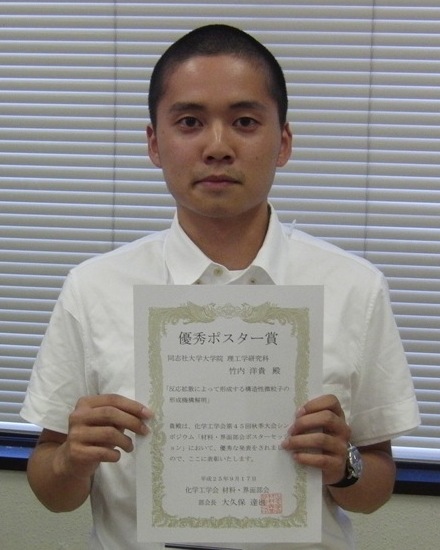 優秀ポスター賞
同志社大学大学院 理工学研究科
竹内 洋貴 殿
「反応拡散によって形成する構造性微粒子の
形成機構解明」
貴殿は、化学工学会第45回秋季大会シン
ポジウム「材料・界面部会ポスターセッシ
ョン」において、優秀な発表をされました
ので、ここに表彰いたします。
平成25年9月17日
化学工学会 材料・界面部会
部会長 大久保 達也